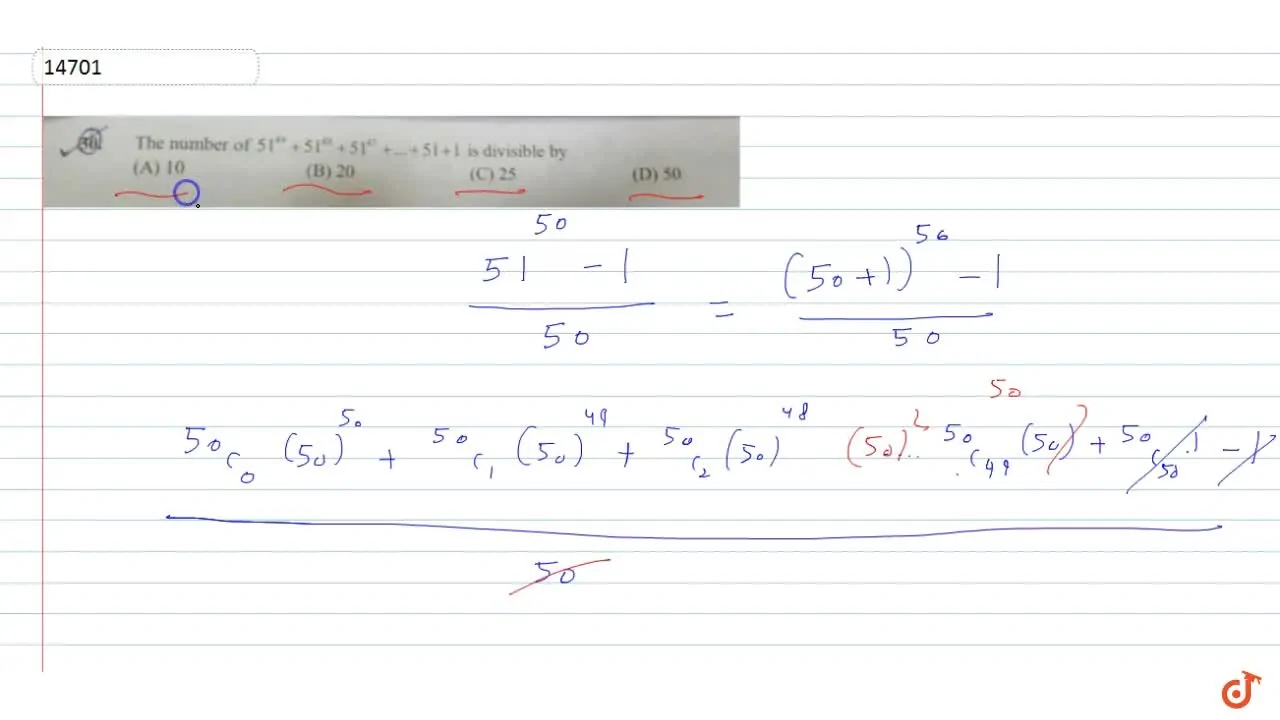 14701
30. The number of 51⁴⁹ + 51⁴⁸ + 51⁴⁷ + ... + 51 + 1 is divisible by
(A) 10 (B) 20 (C) 25 (D) 50
51^50 - 1 / 50 = (50 + 1)^50 - 1 / 50
50
50C0 (50)^50 + 50C1 (50)^49 + 50C2 (50)^48 (50)^2 .. 50C49 (50) + 50C50 .1 - 1
50